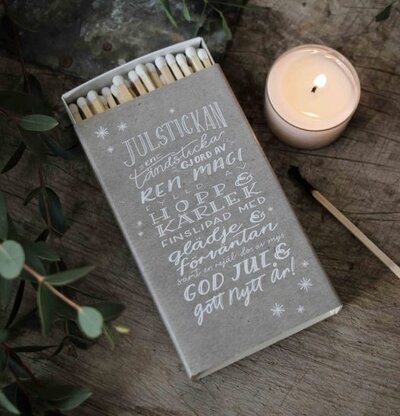 JULSTICKAN
en
tändsticka
GJORD AV
REN MAGI
FYLLD AV
HOPP &
KÄRLEK
FINSLIPAD MED
glädje &
förväntan
samt en rejäl dos av mys
GOD JUL &
gott Nytt År!